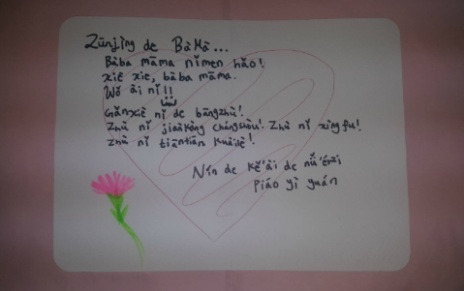 Zūnjìng de BàMā...
Bàba māma nǐmen hǎo!
xiè xie, bàba māma.
Wǒ ài nǐ!!
Gǎnxiè nǐ de bāngzhù!
Zhù nǐ jiànkāng chángshòu! Zhù nǐ xìngfu!
zhù nǐ tiāntiān kuàilè!
Nín de kě'ài de nǚ'ér
Piáo yì yuán